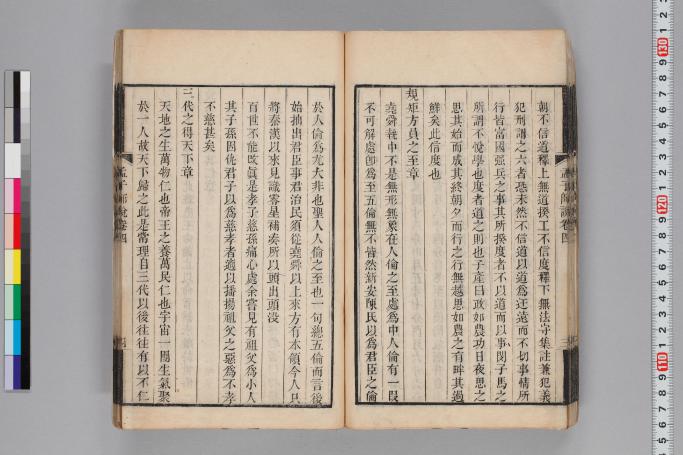 朝不信道釋上無道揆工不信度釋下無法守集註兼犯義
犯刑謂之六者恐未然不信道以道爲迂遠而不切事情所
行皆富國强兵之事其所揆度者不以道而以事閔子馬之
所謂不悅學也度者道之則也子產曰政如農功日夜思之
思其始而成其終朝夕而行之行無越思如農之有畔其過
鮮矣此信度也
規矩方員之至章
堯舜執中不是無形無象在人倫之至處爲中人倫有一段
不可解處卽爲至五倫無不皆然新安陳氏以爲君臣之倫
於人倫爲尤大非也聖人人倫之至也一句總五倫而言後
始抽出君臣事君治民須從堯舜以上來方有本領今人只
將秦漢以來見識零星補湊所以頭出頭沒
百世不能改眞是孝子慈孫痛心處余嘗見有祖父爲小人
其子孫因仇君子以爲慈孝者適以播揚祖父之惡爲不孝
不慈甚矣
三代之得天下章
天地之生萬物仁也帝王之養萬民仁也宇宙一團生氣聚
於一人故天下歸之此是常理自三代以後往往有以不仁
孟子師說卷四